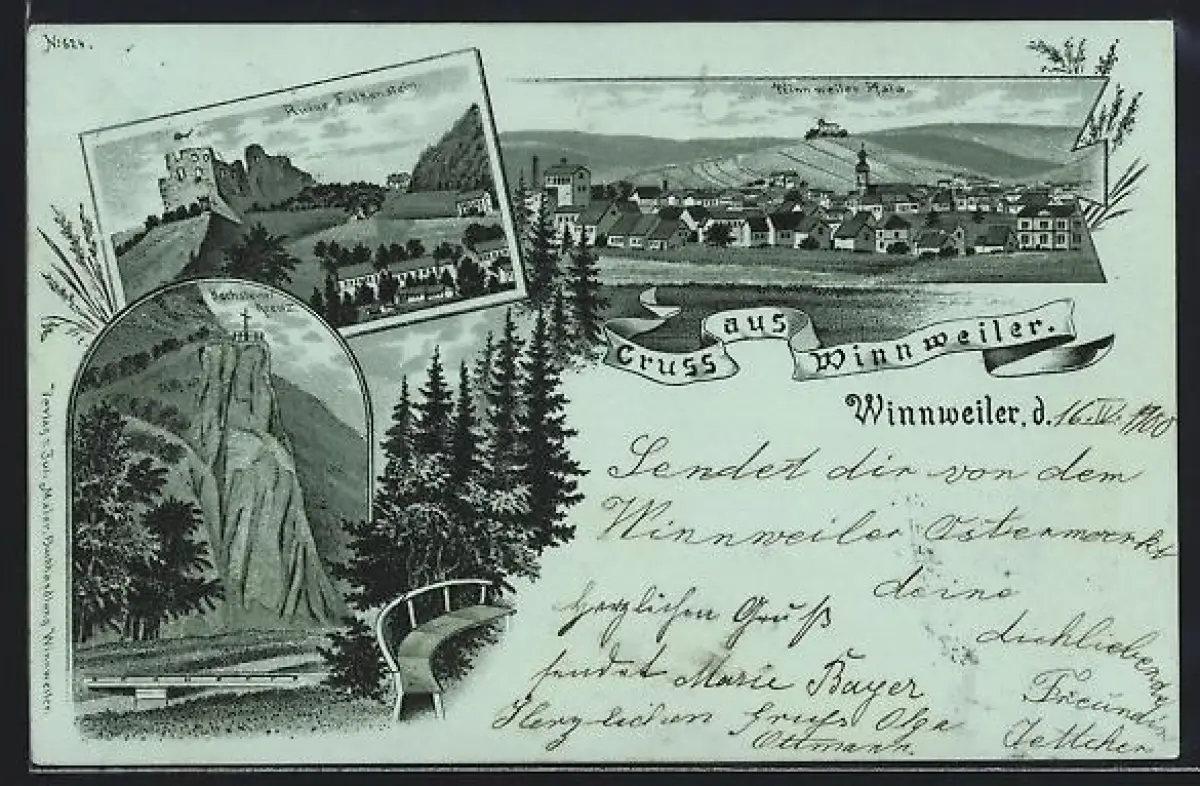 No 624.
Ruine Falkenstein
Winnweiler Pfalz
Gruss
aus
Winnweiler.
Winnweiler, d. 16. IV. 1900
Sendet dir von dem
Winnweiler Ostermarkt
deine
dichliebende
Freundin
Jettchen
Herzlichen Gruß
sendet Marie Bayer
Herzlichen Gruß Olga
Ottmann.
Verlag v. Buchhandlung Winnweiler.